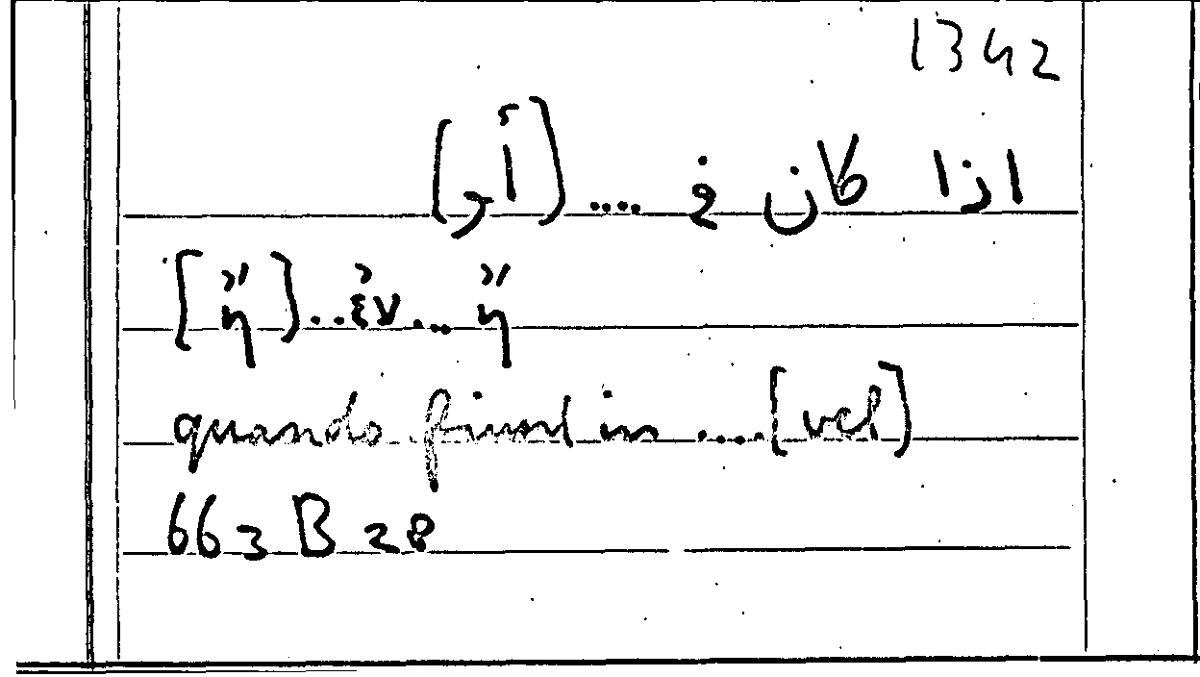 1342
اذا كان في .... [أو]
ἢ .... ἐν .. [ἢ]
quando fiunt in .... [vel]
663 B 28